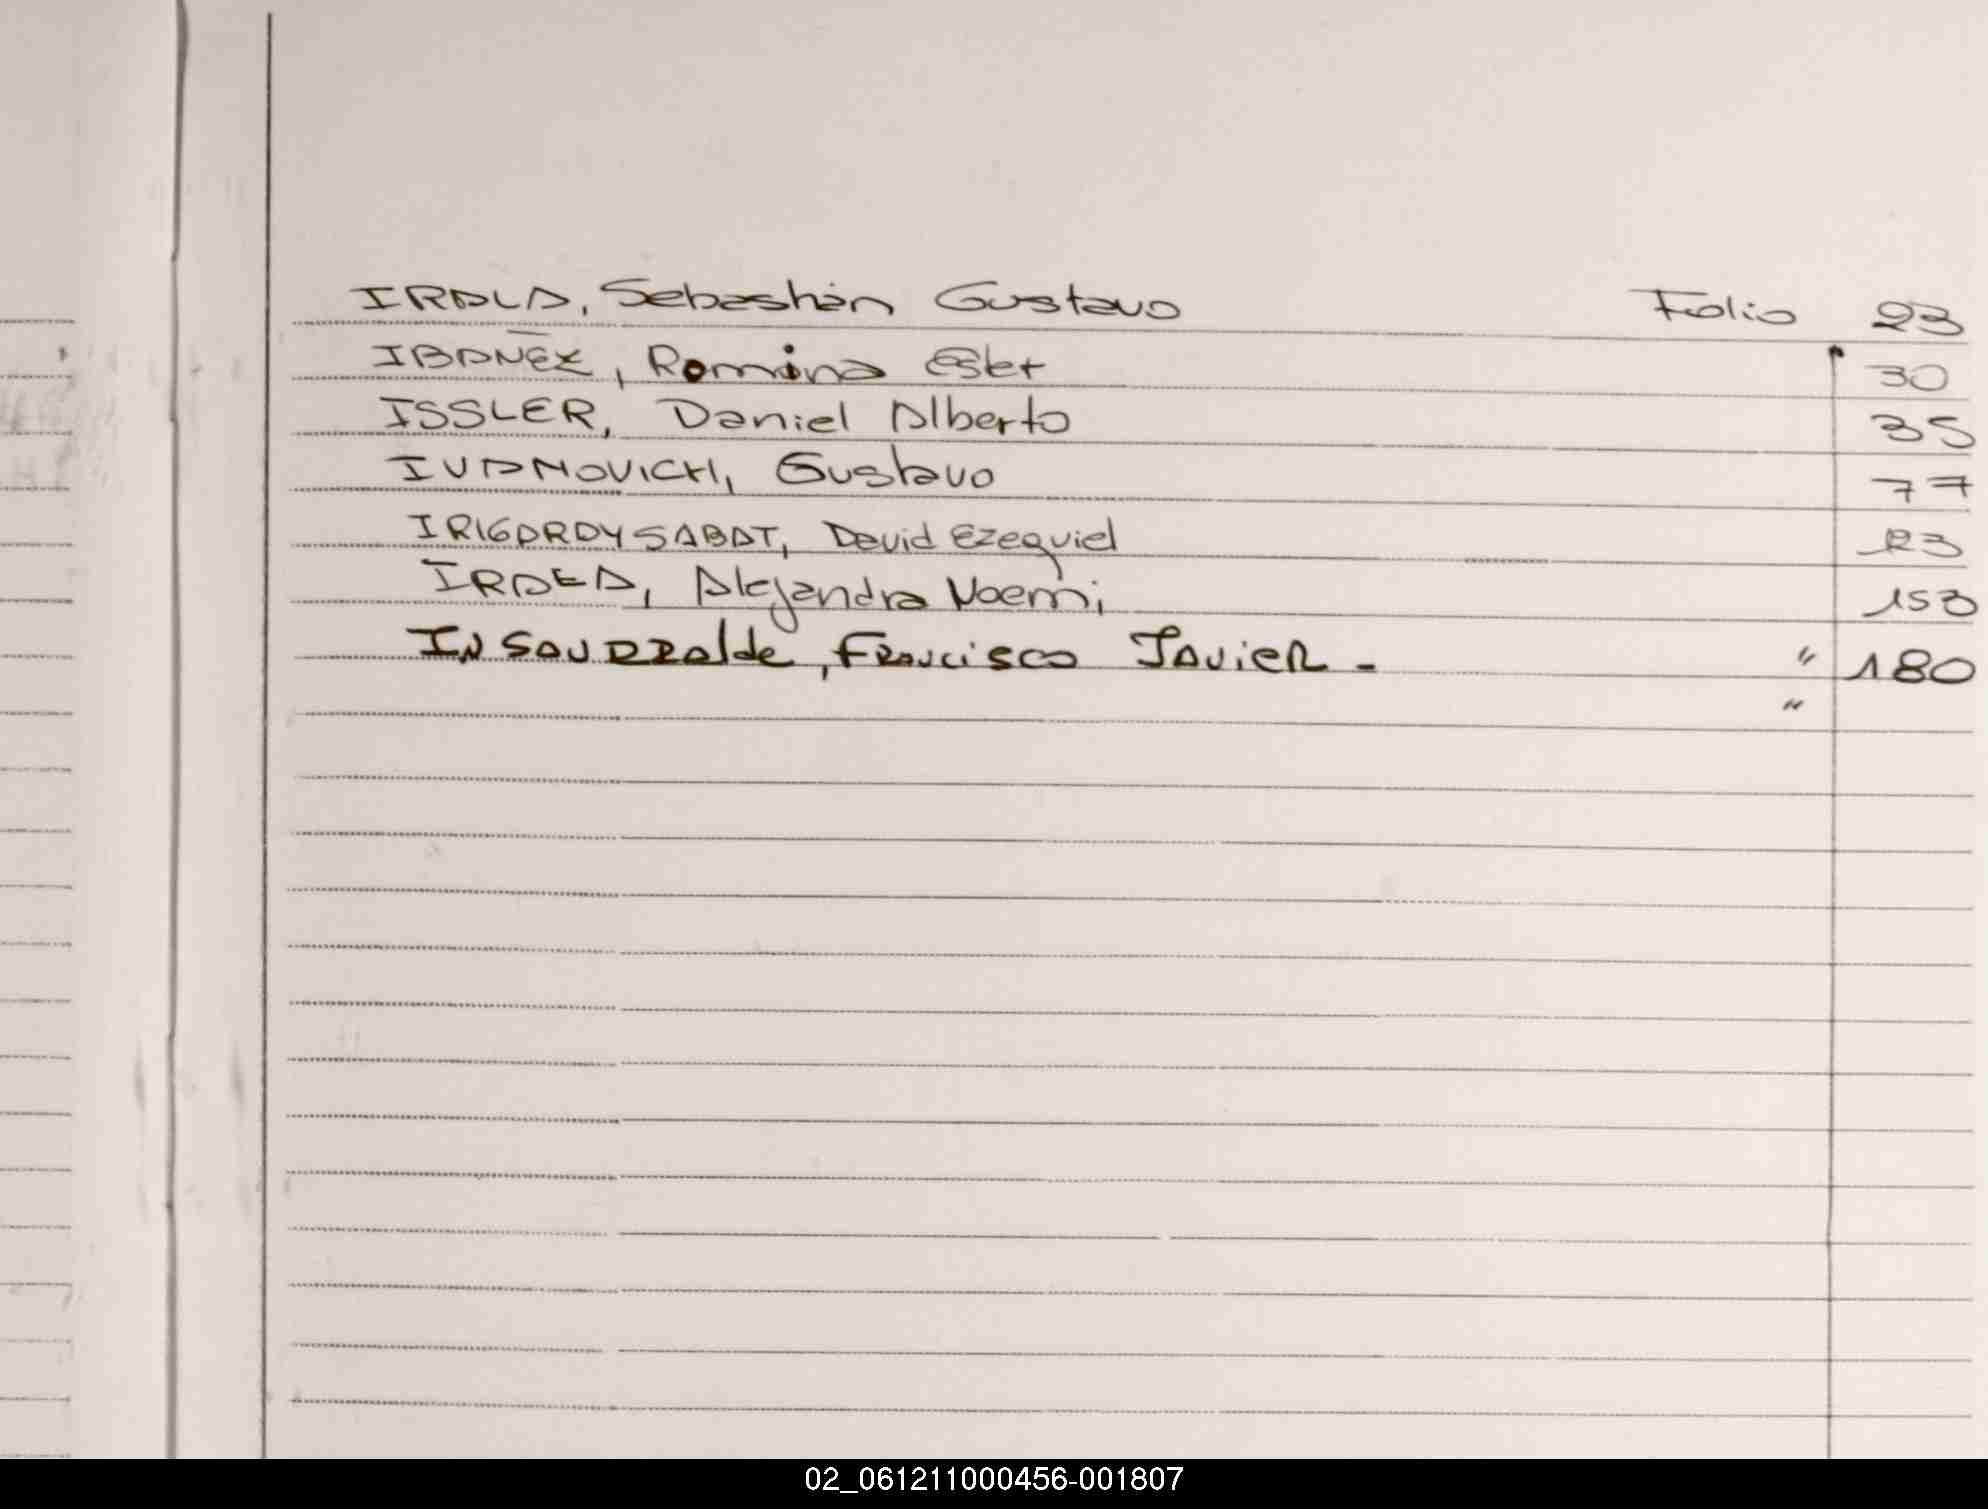 IRALA, Sebastián Gustavo Folio 23
IBAÑEZ, Romina Ester 30
ISSLER, Daniel Alberto 35
IVANOVICH, Gustavo 77
IRIGARAY SABAT, David Ezequiel 123
IRAEA, Alejandra Noemi 153
INSAURRAlde, FRANCisco JAVIER - " 180
"
02_061211000456-001807